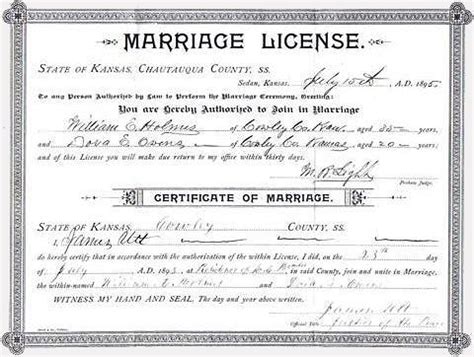 MARRIAGE LICENSE.
STATE OF KANSAS, CHAUTAUQUA COUNTY, SS.
Sedan, Kansas, July 15th A.D. 1895
To any Person Authorized by Law to Perform the Marriage Ceremony, Greeting:
You are Hereby Authorized to Join in Marriage
William E. Holmes of Cowley Co. Kan. aged 35 years,
and Dova E. Owens of Cowley Co. Kansas aged 20 years;
and of this License you will make due return to my office within thirty days.
M. B. Light
Probate Judge.
CERTIFICATE OF MARRIAGE.
STATE OF KANSAS, Cowley COUNTY, SS.
I, James
do hereby certify that in accordance with the authorization of the within License, I did, on the 23th day
of July A.D. 1895, at Residence of in said County, join and unite in Marriage
the within-named William E. Holmes and Dova E. Owens
WITNESS MY HAND AND SEAL. The day and year above written.
James
Official Justice of the Peace